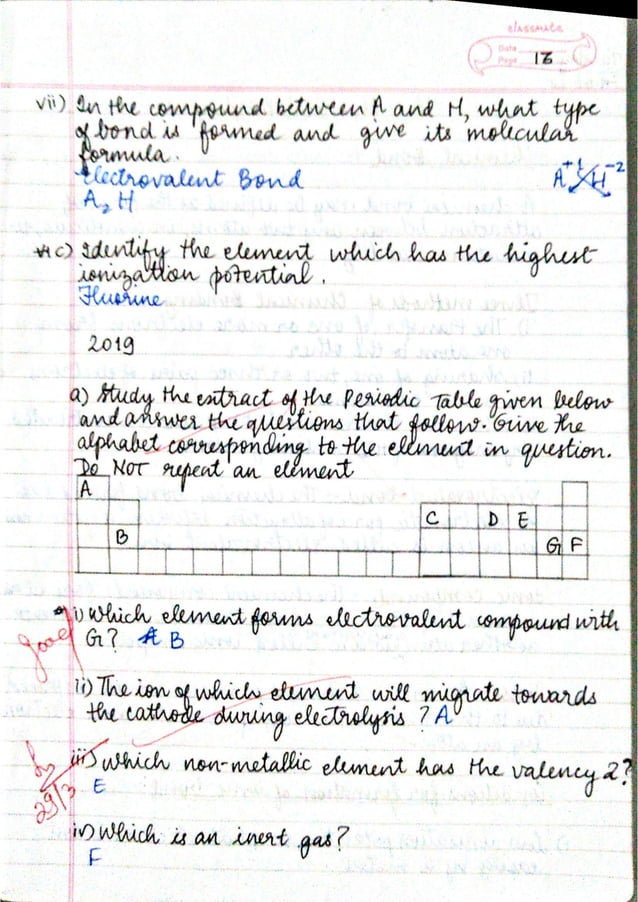 classmate
Date
Page 18
vii) In the compound between A and H, what type
of bond is formed and give its molecular
formula.
Electrovalent Bond
A+1 H-2
A2 H
c) Identify the element which has the highest
ionization potential.
Fluorine
2019
a) Study the extract of the Periodic Table given below
and answer the questions that follow. Give the
alphabet corresponding to the element in question.
Do NOT repeat an element
A
C D E
B G F
i) which element forms electrovalent compound with
G? B
good
ii) The ion of which element will migrate towards
the cathode during electrolysis? A
iii) which non-metallic element has the valency 2?
E
29/3
iv) which is an inert gas?
F